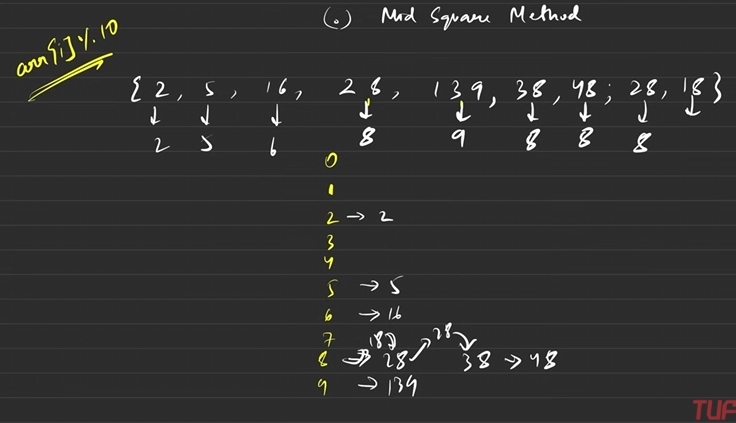 (.) Mid Square Method
arr[i] % 10
{ 2, 5, 16, 28, 139, 38, 48, 28, 18 }
2 5 6 8 9 8 8 8
0
1
2 → 2
3
4
5 → 5
6 → 16
7
18 28
8 → 28 38 → 48
9 → 139
TUF